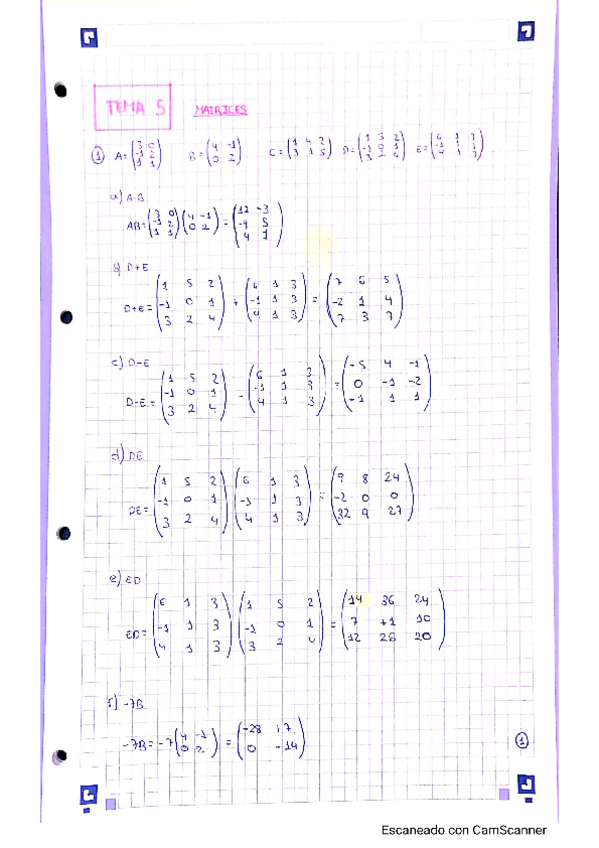 TEMA 5 MATRICES
① A = (3 0; -1 2; 1 1) B = (4 -1; 0 2) C = (1 4 2; 3 1 5) D = (1 5 2; -1 0 1; 3 2 4) E = (6 1 3; -1 1 3; 4 1 3)
a) A·B
AB = (3 0; -1 2; 1 1) (4 -1; 0 2) = (12 -3; -4 5; 4 1)
b) D+E
D+E = (1 5 2; -1 0 1; 3 2 4) + (6 1 3; -1 1 3; 4 1 3) = (7 6 5; -2 1 4; 7 3 7)
c) D-E
D-E = (1 5 2; -1 0 1; 3 2 4) - (6 1 3; -1 1 3; 4 1 3) = (-5 4 -1; 0 -1 -2; -1 1 1)
d) DE
DE = (1 5 2; -1 0 1; 3 2 4) (6 1 3; -1 1 3; 4 1 3) = (9 8 24; -2 0 0; 32 9 27)
e) ED
ED = (6 1 3; -1 1 3; 4 1 3) (1 5 2; -1 0 1; 3 2 4) = (14 36 24; 7 +1 10; 12 26 20)
f) -7B
-7B = -7 (4 -1; 0 2) = (-28 +7; 0 -14)
①
Escaneado con CamScanner